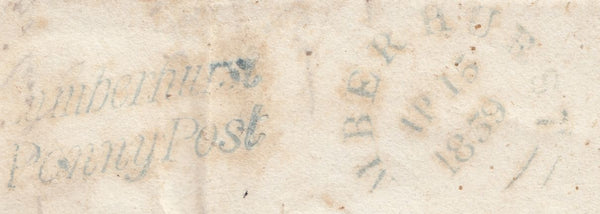 Lamberhurst
Penny Post
LAMBERHURST
AP 13
1839